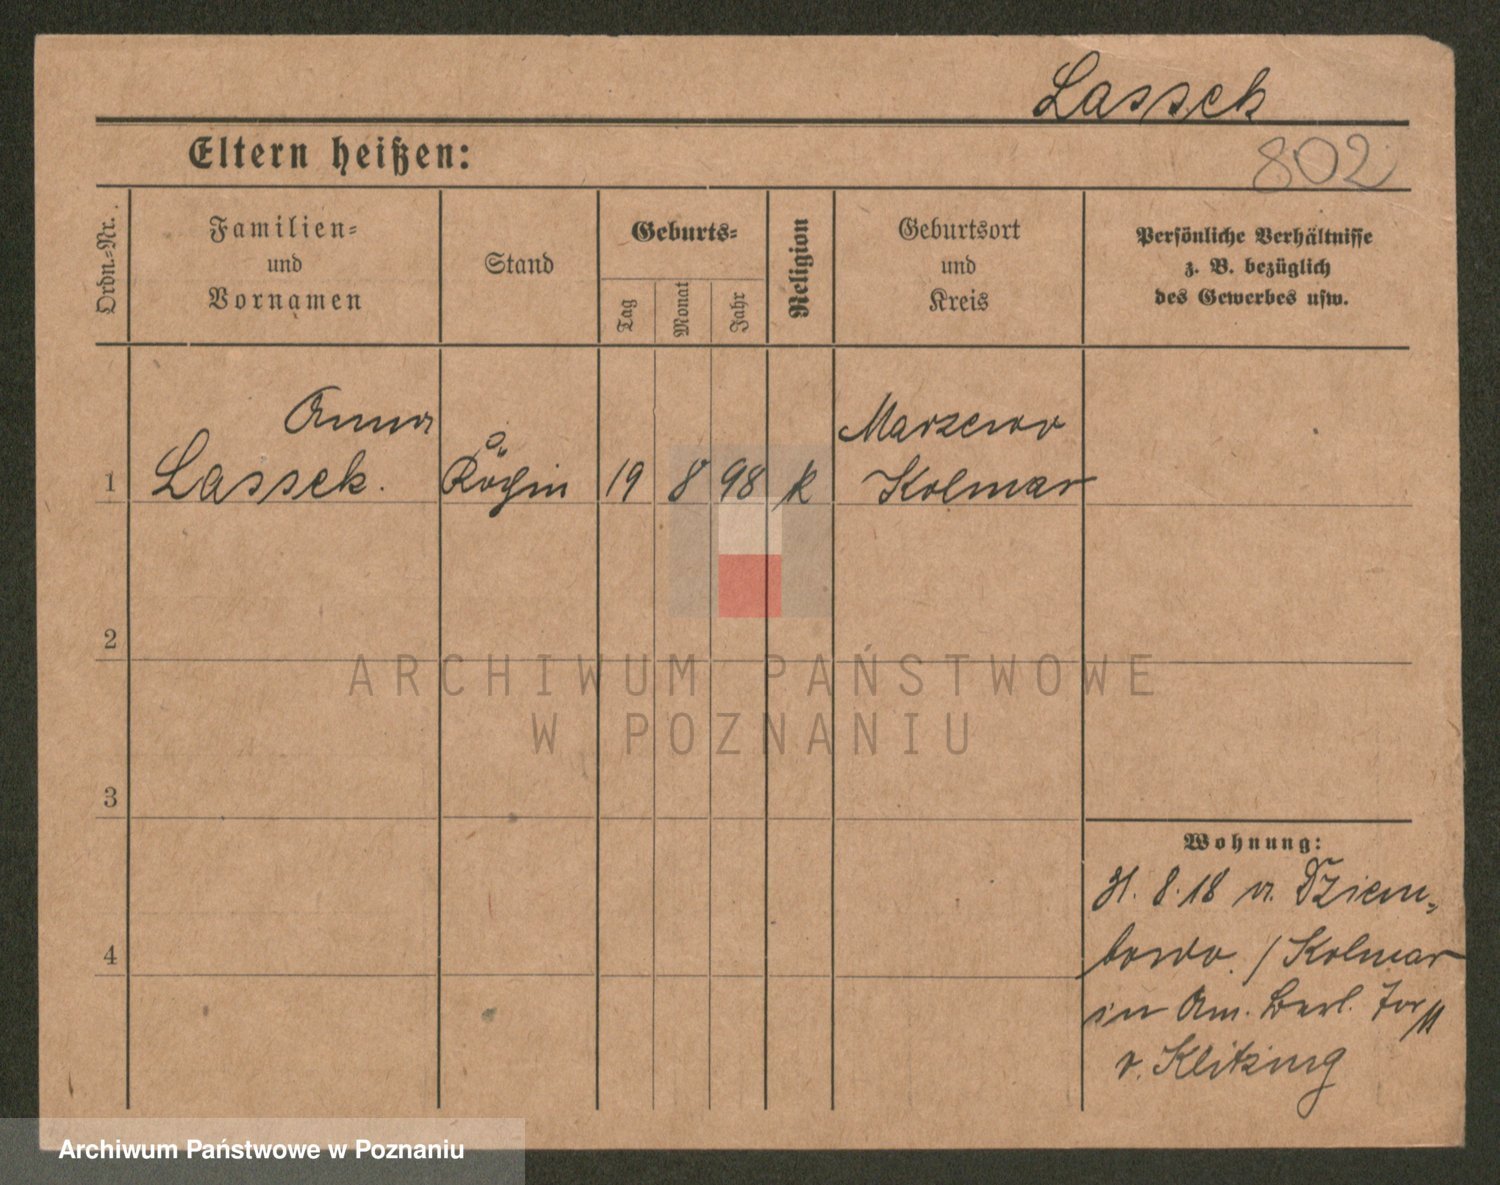 Lassek
802
Eltern heißen:
Ordn.-Nr.
Familien-
und
Vornamen
Stand
Geburts-
Tag
Monat
Jahr
Religion
Geburtsort
und
Kreis
Persönliche Verhältnisse
z. B. bezüglich
des Gewerbes usw.
Anna
Marzewo
1 Lassek. Köchin 19 8 98 k Kolmar
2
ARCHIWUM PAŃSTWOWE
W POZNANIU
3
Wohnung:
8.18 v. Dziem-
bowo. / Kolmar
4
in Am. Berl. Tor
v. Klitzing
Archiwum Państwowe w Poznaniu